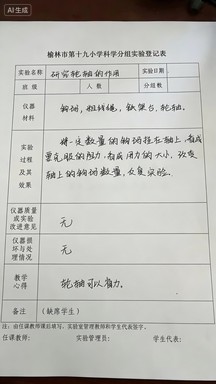 AI生成
榆林市第十九小学科学分组实验登记表
实验名称 研究轮轴的作用 实验日期
班 级 人 数 分组数
仪器材料 钩码,粗线绳,铁架台,轮轴。
实验过程及其效果
将一定数量的钩码挂在轴上,看成
要克服的阻力,看成用力的大小,改变
轴上的钩码数量,反复实验。
仪器质量或实验改进意见 无
仪器损坏与处理情况 无
教学心得 轮轴可以省力。
备注 (缺席学生)
注:由任课教师课后填写,实验室管理教师和学生代表签字。
任课教师: 实验管理员: 学生代表: